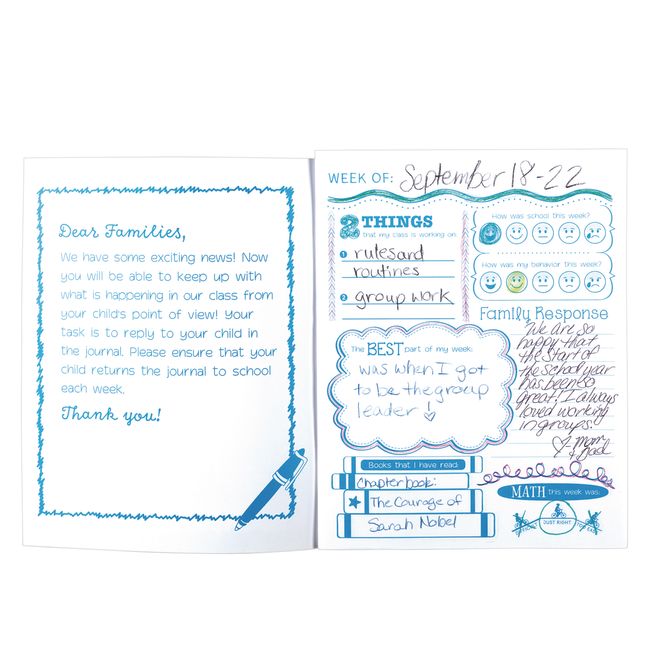 Dear Families,
We have some exciting news! Now
you will be able to keep up with
what is happening in our class from
your child's point of view! Your
task is to reply to your child in
the journal. Please ensure that your
child returns the journal to school
each week.
Thank you!
WEEK OF: September 18-22
2 THINGS
that my class is working on:
1 rules and
routines
2 group work
How was school this week?
How was my behavior this week?
Family Response
We are so
happy that
the start of
the school year
has been so
great! I always
loved working
in groups.
mom
+ dad
The BEST part of my week:
was when I got
to be the group
leader!
Books that I have read:
Chapter book:
The Courage of
Sarah Nobel
MATH this week was:
JUST RIGHT